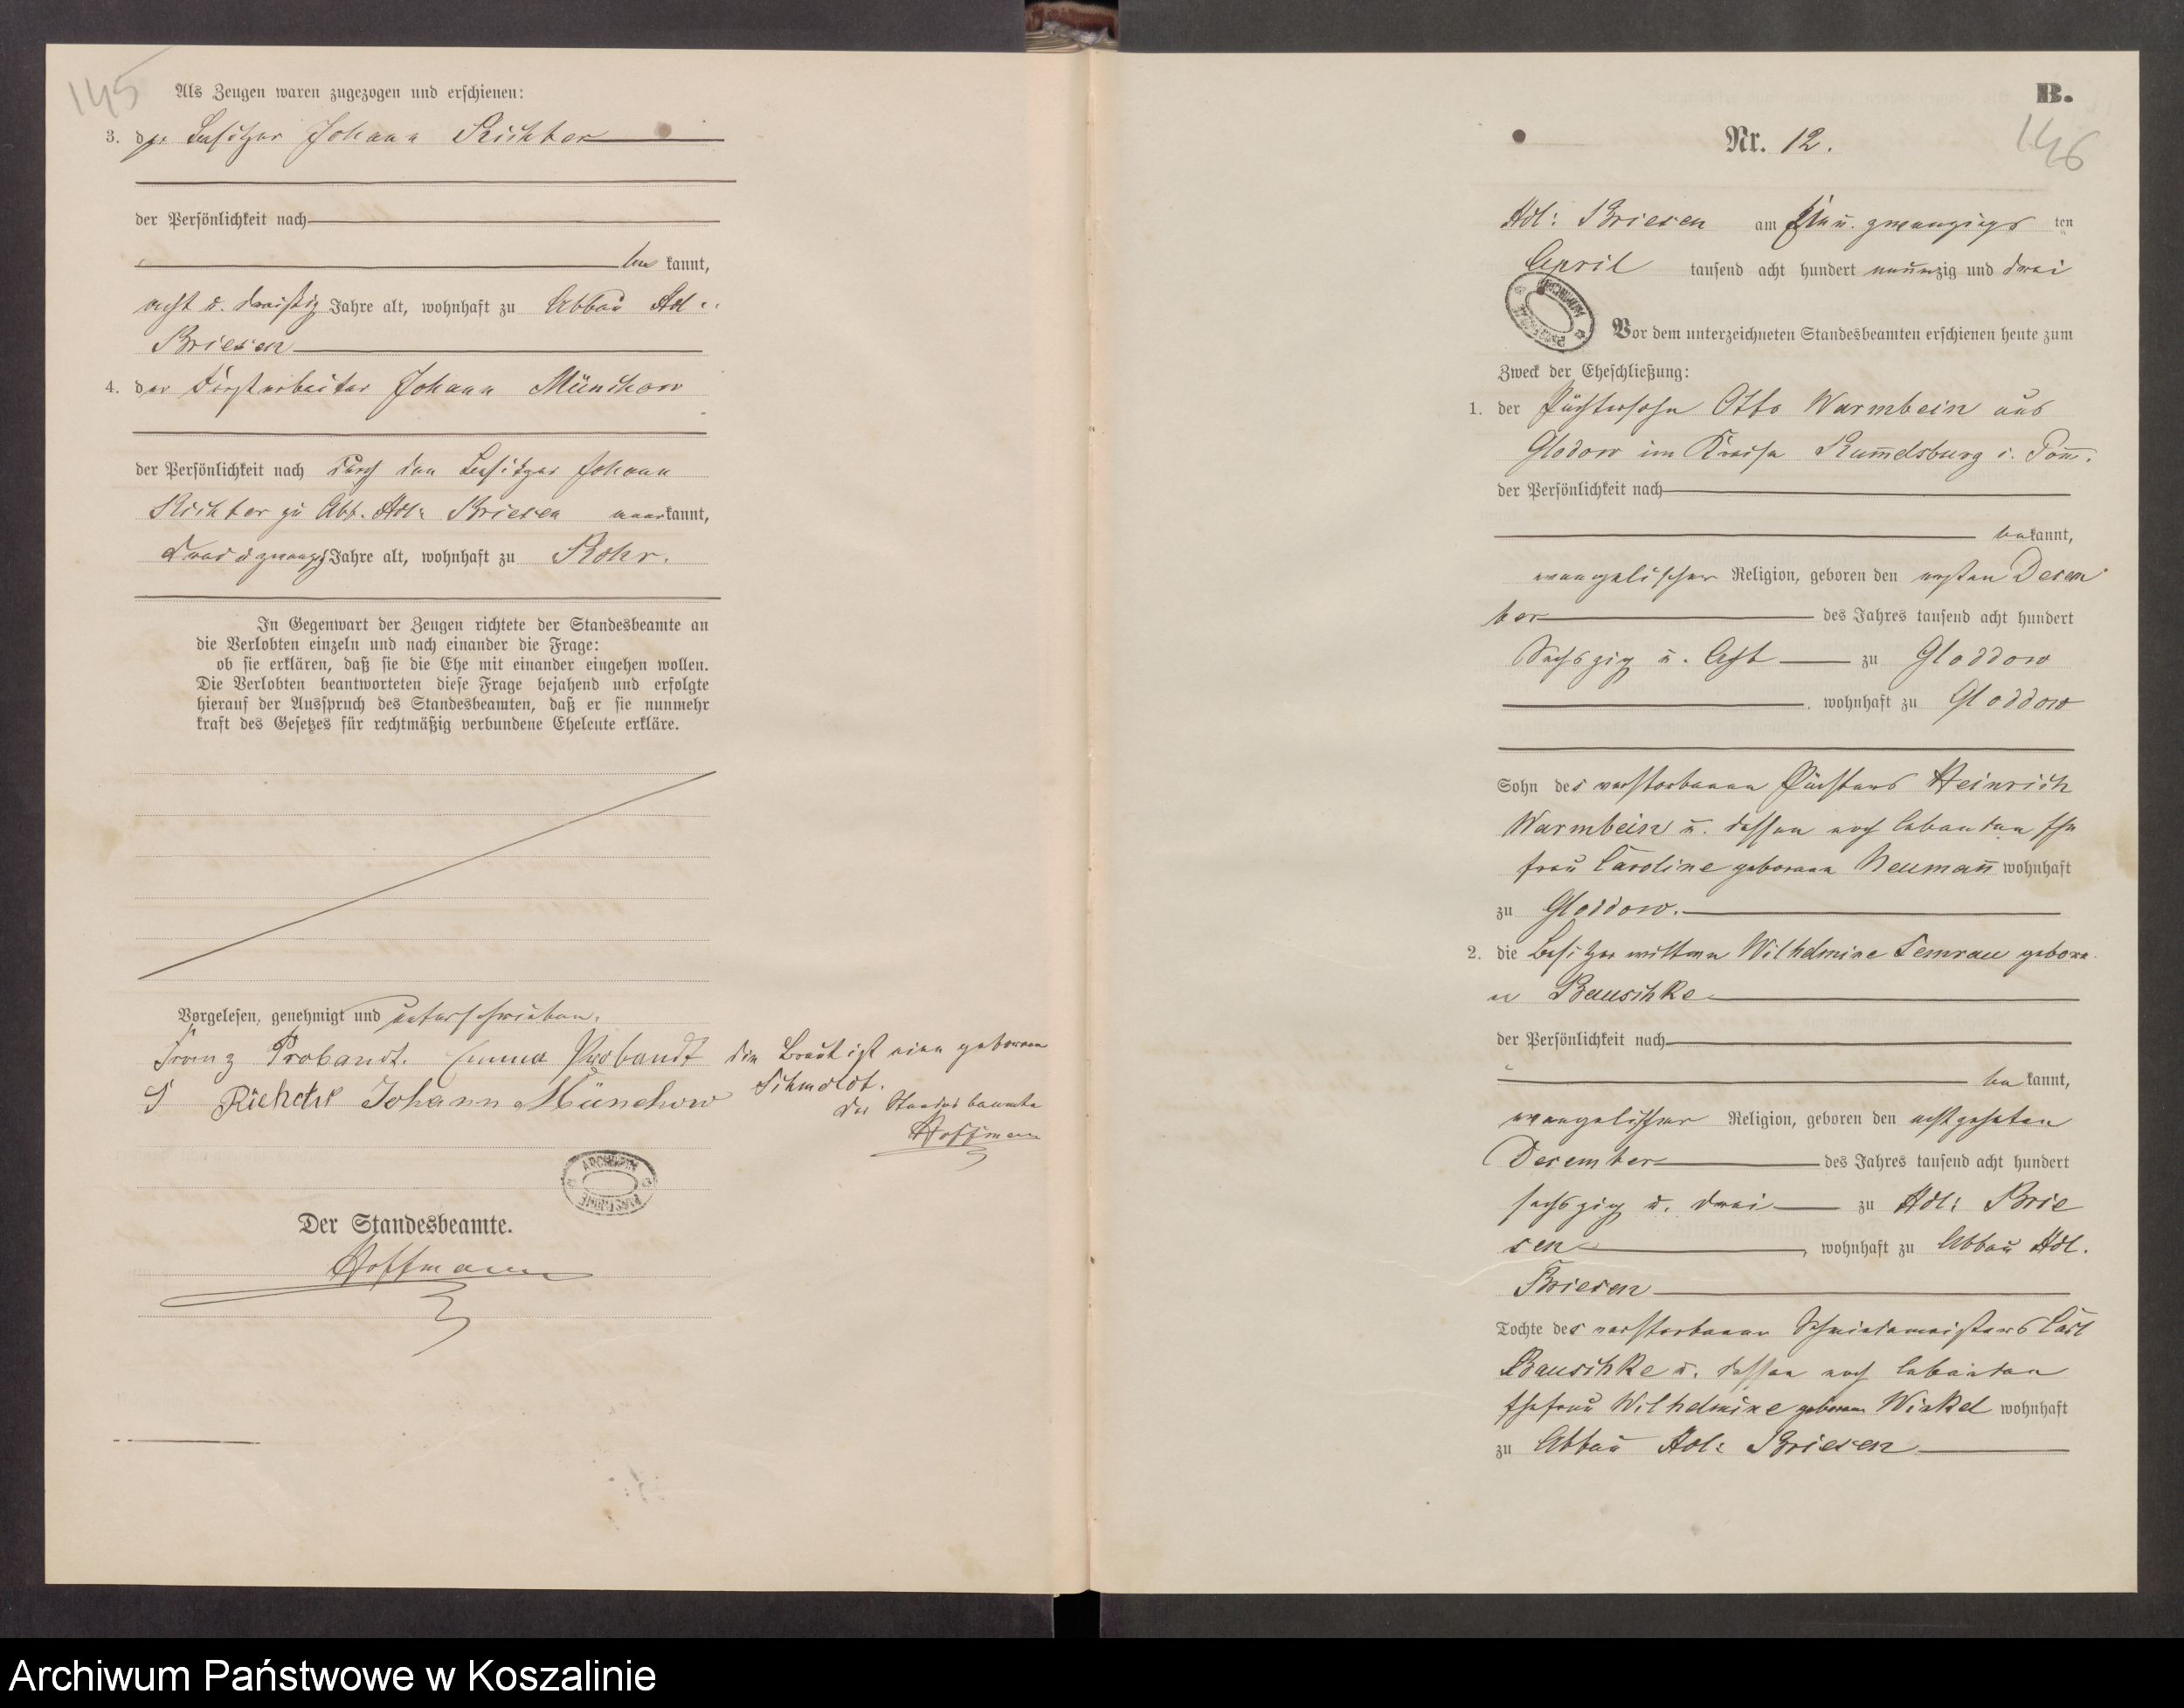 145
Als Zeugen waren zugezogen und erschienen:
3. der Besitzer Johann Richter
der Persönlichkeit nach
be kannt,
acht u. dreißig Jahre alt, wohnhaft zu Abbau Adl:
Briesen
4. der Forstarbeiter Johann Münchow
der Persönlichkeit nach durch den Besitzer Johann
Richter zu Abb. Adl: Briesen anerkannt,
drei u zwanzig Jahre alt, wohnhaft zu Rohr.
In Gegenwart der Zeugen richtete der Standesbeamte an
die Verlobten einzeln und nach einander die Frage:
ob sie erklären, daß sie die Ehe mit einander eingehen wollen.
Die Verlobten beantworteten diese Frage bejahend und erfolgte
hierauf der Ausspruch des Standesbeamten, daß er sie nunmehr
kraft des Gesetzes für rechtmäßig verbundene Eheleute erkläre.
Vorgelesen, genehmigt und unterschrieben.
Franz Probandt. Emma Probandt die Braut ist eine geborene
Schmoldt.
J Richter Johann Münchow
Der Standesbeamte
Hoffmann
ARCHIWUM
Der Standesbeamte.
Hoffmann
B.
146
Nr. 12.
Adl: Briesen am Ein u. zwanzigs ten
April tausend acht hundert neunzig und drei
ARCHIWUM
Vor dem unterzeichneten Standesbeamten erschienen heute zum
Zweck der Eheschließung:
1. der Pächtersohn Otto Warmbein aus
Glodow im Kreise Rummelsburg i. Pom.
der Persönlichkeit nach
bekannt,
evangelischer Religion, geboren den ersten Dezem
ber des Jahres tausend acht hundert
Sechszig u. Acht zu Gloddow
, wohnhaft zu Gloddow
Sohn des verstorbenen Pächters Heinrich
Warmbein u. dessen noch lebenden Ehe
frau Caroline geborene Neumann wohnhaft
zu Gloddow.
2. die Besitzer wittwe Wilhelmine Semrau gebore
ne Bauschke
der Persönlichkeit nach
be kannt,
evangelischer Religion, geboren den achtzehnten
Dezember des Jahres tausend acht hundert
sechszig u. drei zu Adl: Brie
sen, wohnhaft zu Abbau Adl.
Briesen
Tochte des verstorbenen Schmiedemeisters Carl
Bauschke u. dessen noch lebenden
Ehefrau Wilhelmine geborene Winkel wohnhaft
zu Abbau Adl: Briesen
Archiwum Państwowe w Koszalinie